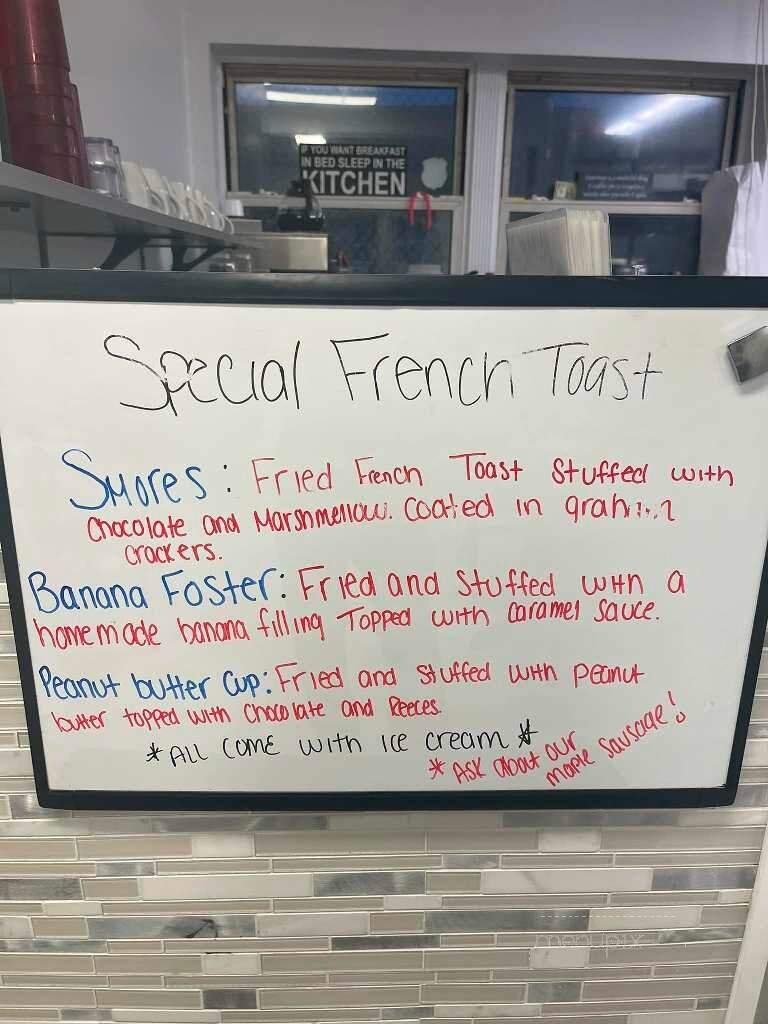 IF YOU WANT BREAKFAST
IN BED SLEEP IN THE
KITCHEN
Special French Toast
Smores: Fried French Toast Stuffed with
Chocolate and Marshmellow. Coated in
crackers.
Banana Foster: Fried and Stuffed with a
homemade banana filling Topped with Caramel Sauce.
Peanut butter Cup: Fried and Stuffed with peanut
butter topped with Chocolate and Reeces.
*All come with ice cream*
*Ask about our
maple sausage!
menupix